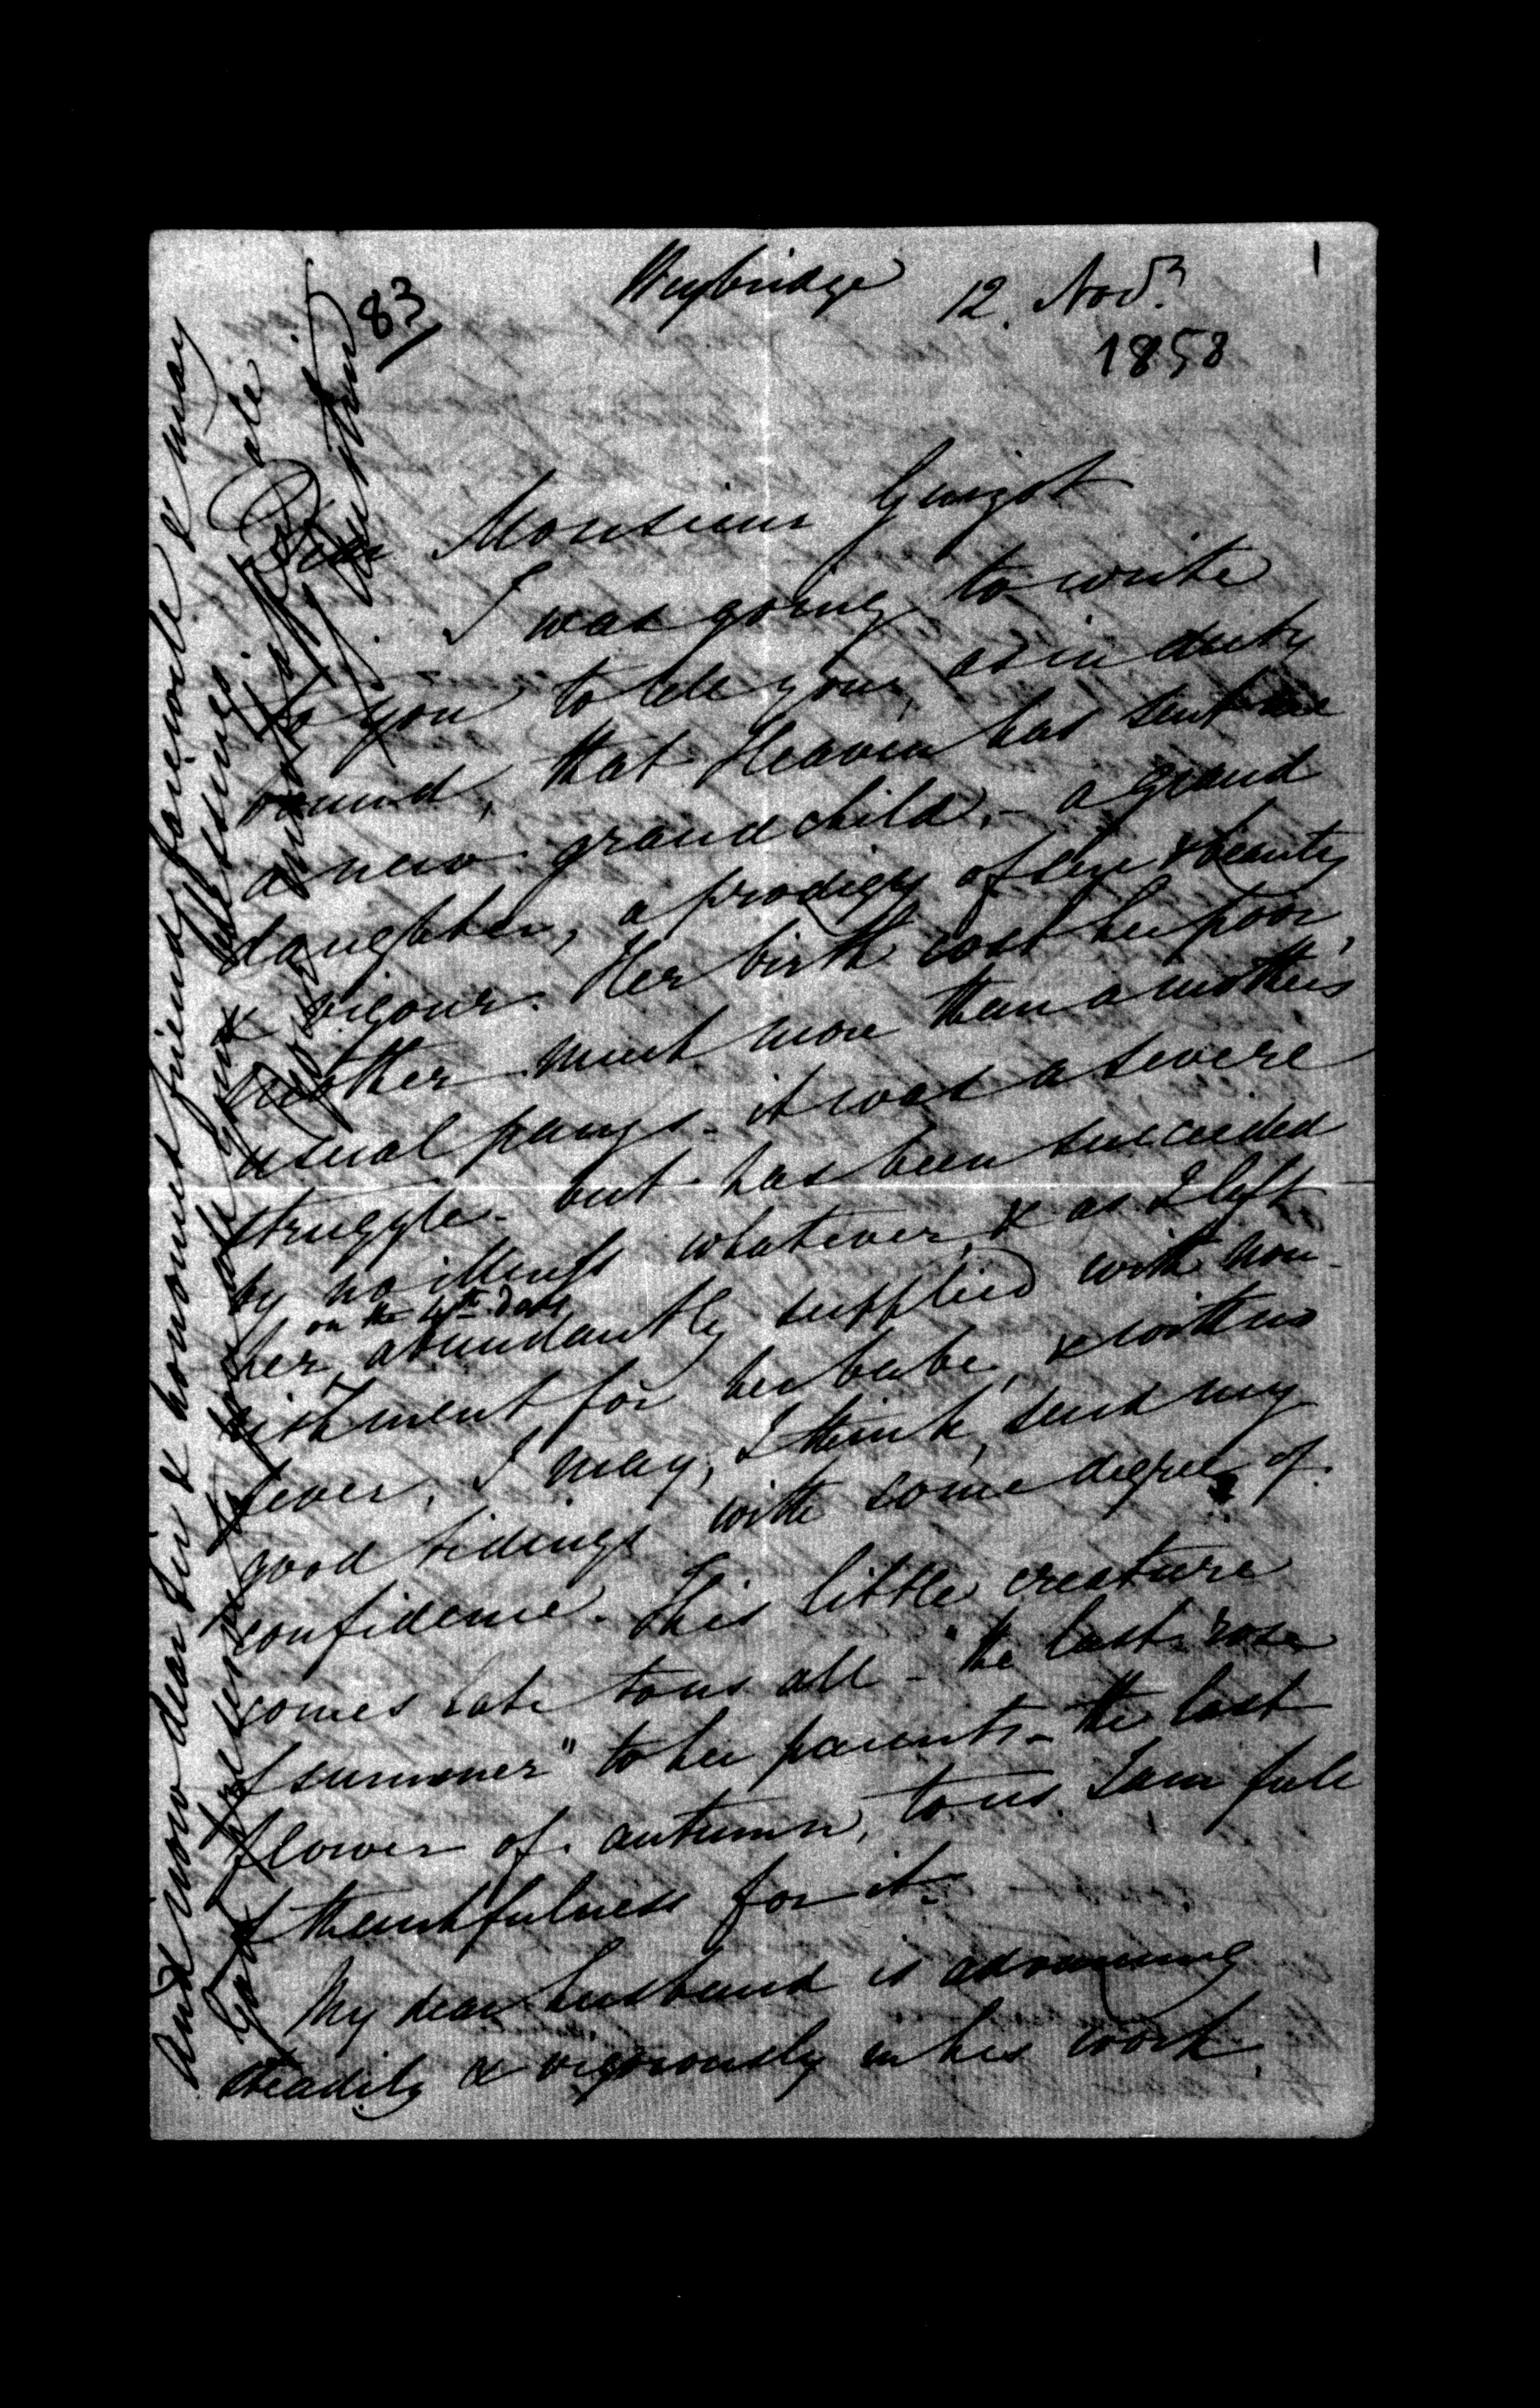 83
1
Weybridge 12. Novr.
1858
Dear Monsieur Guizot
I was going to write
to you to tell you, as in duty
bound, that Heaven has sent me
a new grandchild, - a grand
daughter, a prodigy of size & beauty
& vigour. Her birth cost her poor
mother much more than a mother's
usual pangs - it was a severe
struggle - but has been succeeded
by no illness whatever, & as I left
on the 4th day
her abundantly supplied with nou-
rishment for her babe, & without
fever, I may, I think, send my
good tidings with some degree of
confidence. This little creature
comes late to us all - "the last rose
of summer" to her parents - the last
flower of autumn, to us. I am full
of thankfulness for it.
My dear husband is advancing
steadily & vigorously in his work.
And now dear Sir & honoured friend, farewell & may
God preserve you & all your blessings.
Yours